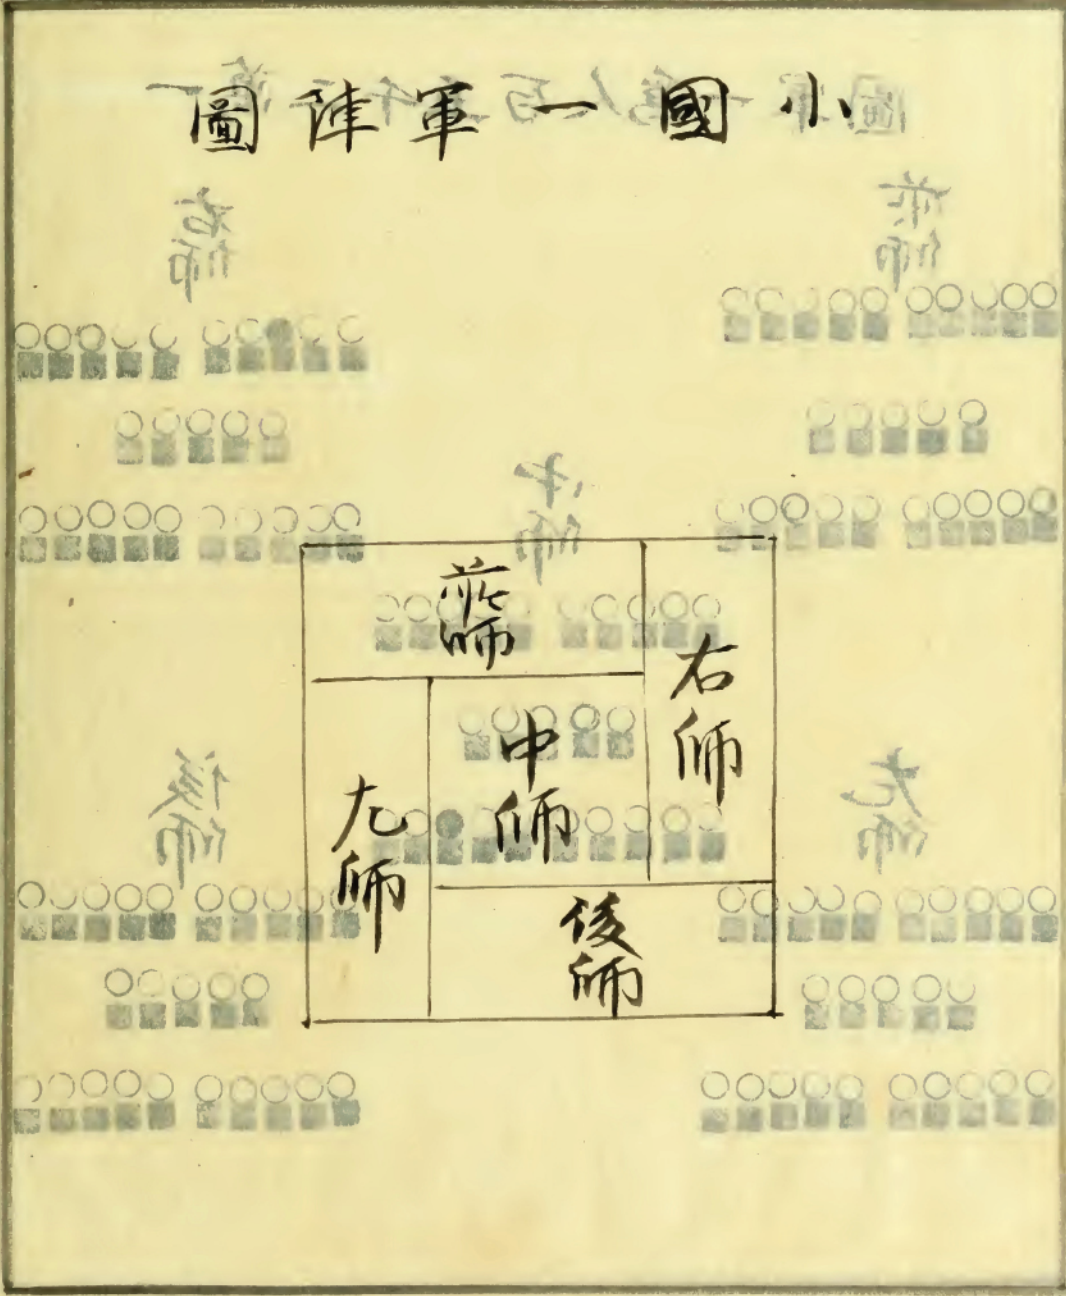 小國一軍陣圖
前師
右師
中師
左師
後師